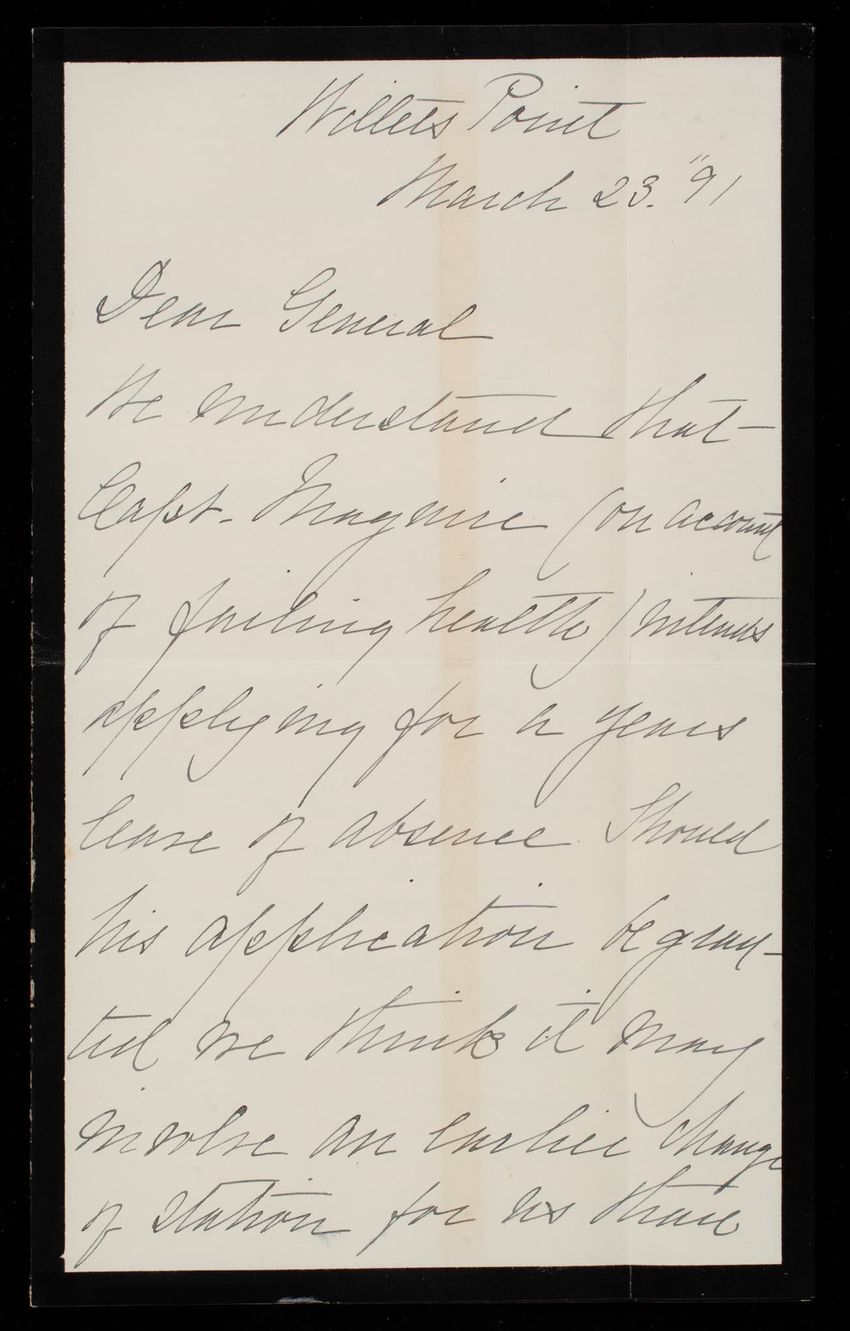 Willets Point
March 23. "91
Dear General
We understand that
Capt. Maguire (on account
of failing health) intends
applying for a years
leave of absence. Should
his application be gran-
ted we think it may
involve an earlier change
of station for us than